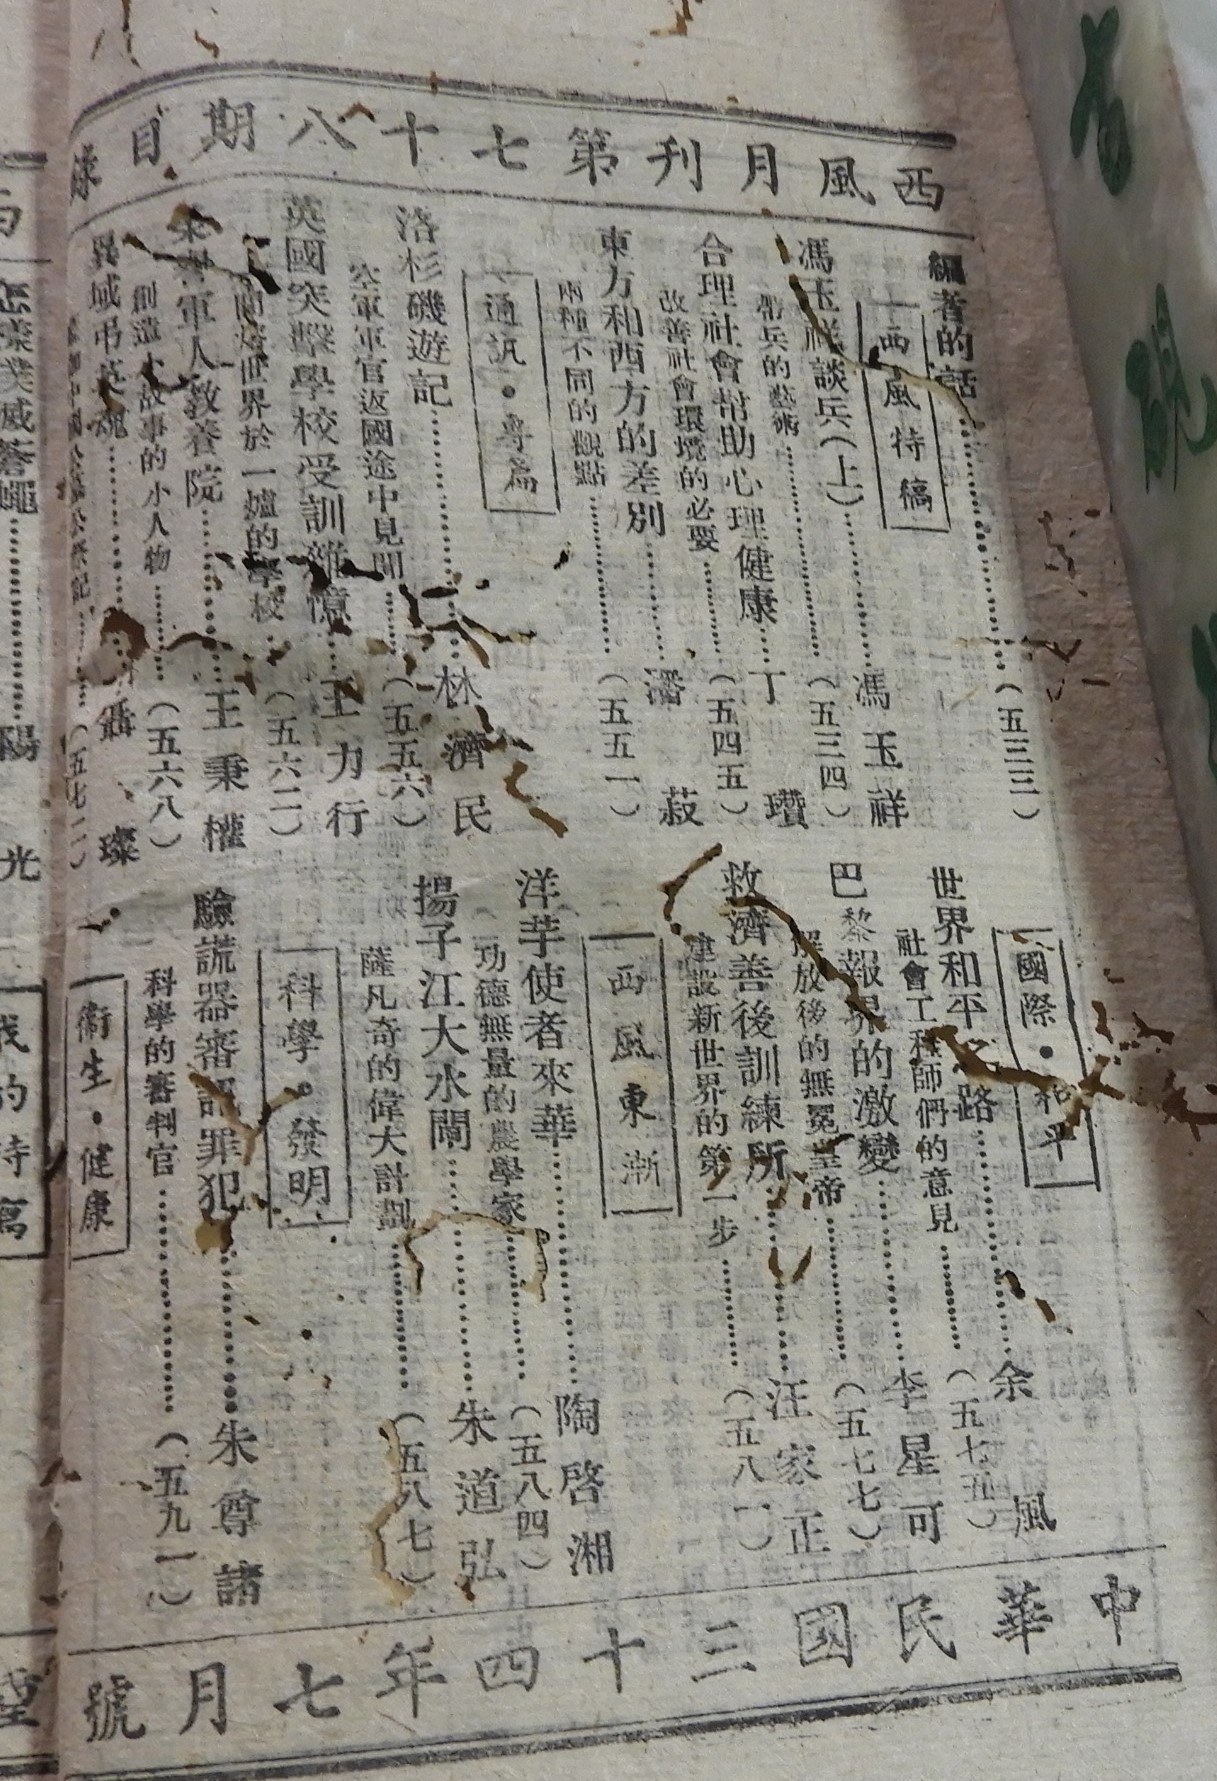 西風月刊第七十八期目錄
編者的話……(五三三)
西風特稿
馮玉祥談兵(上)……馮玉祥
帶兵的藝術……(五三四)
合理社會幫助心理健康……丁瓚
改善社會環境的必要……(五四五)
東方和西方的差別……潘菽
兩種不同的觀點……(五五一)
通訊・專篇
洛杉磯遊記……林濟民
空軍軍官返國途中見聞……(五五六)
英國突擊學校受訓雜憶……王力行
世界於一爐的學校……(五六二)
軍人教養院……王秉權
創造大故事的小人物……(五六八)
異域弔英魂……聶璨
(五七二)
國際・和平
世界和平之路……余風
社會工程師們的意見……(五七五)
巴黎報界的激變……李星可
解放後的無冕皇帝……(五七七)
救濟善後訓練所……汪家正
建設新世界的第一步……(五八一)
西風東漸
洋芋使者來華……陶啓湘
功德無量的農學家……(五八四)
揚子江大水閘……朱道弘
薩凡奇的偉大計劃……(五八七)
科學・發明
驗謊器審訊罪犯……朱尊諸
科學的審判官……(五九一)
衞生・健康
中華民國三十四年七月號
撲滅蒼蠅……陽光
我的特寫